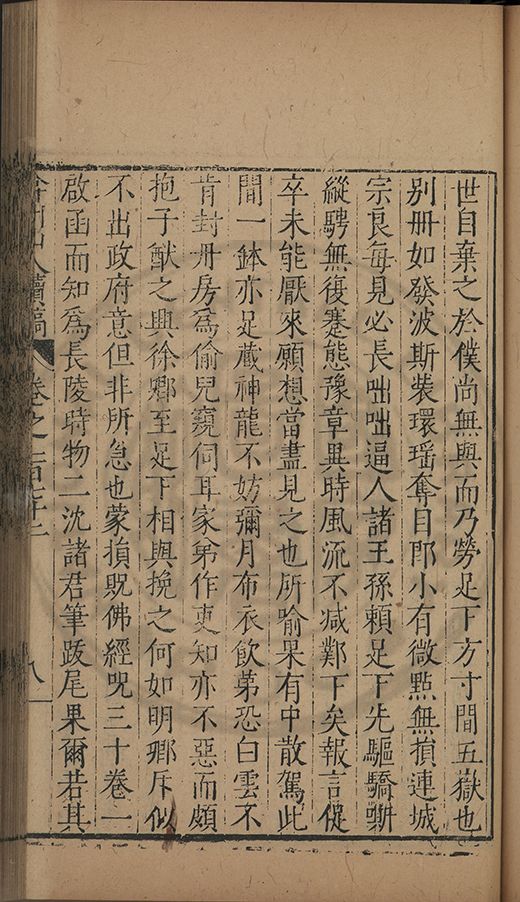 世自棄之於僕尚無與而乃勞足下方寸間五嶽也
別冊如發波斯裝環瑤奪目郎小有微點無損連城
宗良每見必長咄咄逼人諸王孫賴足下先驅驕嘶
縱騁無復蹇態豫章異時風流不减鄴下矣報言倥
卒未能厭來願想當盡見之也所喻果有中散駕此
間一鉢亦足藏神龍不妨彌月布衣飲第恐白雲不
肯封丹房為偷兒窺伺耳家弟作吏知亦不惡而頗
抱子猷之興徐鄉至足下相與挽之何如明卿斥似
不出政府意但非所急也蒙損貺佛經咒三十卷一
啟函而知為長陵時物二沈諸君筆跋尾果爾若其
山人續稿 卷之一百七十二 八